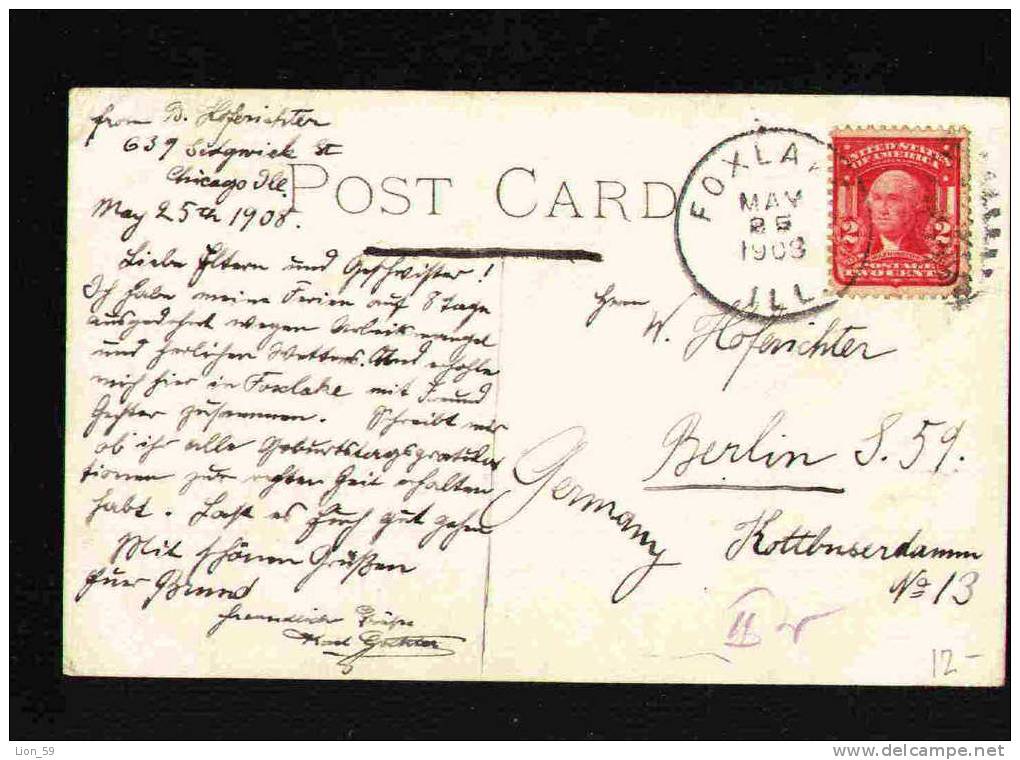 from B. Hoferichter
639 Sedgwick St
Chicago Ill.
May 25th 1908.
POST CARD
Liebe Eltern und Geschwister!
Ich habe meine Ferien auf 8 Tage
ausgedehnt wegen Arbeitsmangel
und herlichen Wetters. Und erhohle
mich hier in Foxlake mit Freund
zusammen. Schreibt mir
ob ihr alle Geburtstagsgratula
tionen zur rechten Zeit erhalten
habt. Laßt es Euch gut gehen
Mit schönen Grüßen
Euer Bruno
Grüße
Karl
FOXLAKE
MAY
25
1908
ILL.
UNITED STATES
OF AMERICA
2 2
POSTAGE
TWO CENTS
Herrn
W. Hoferichter
Berlin S. 59.
Germany
Kottbuserdamm
No 13
II
12-
Lion_59
delcampe.net